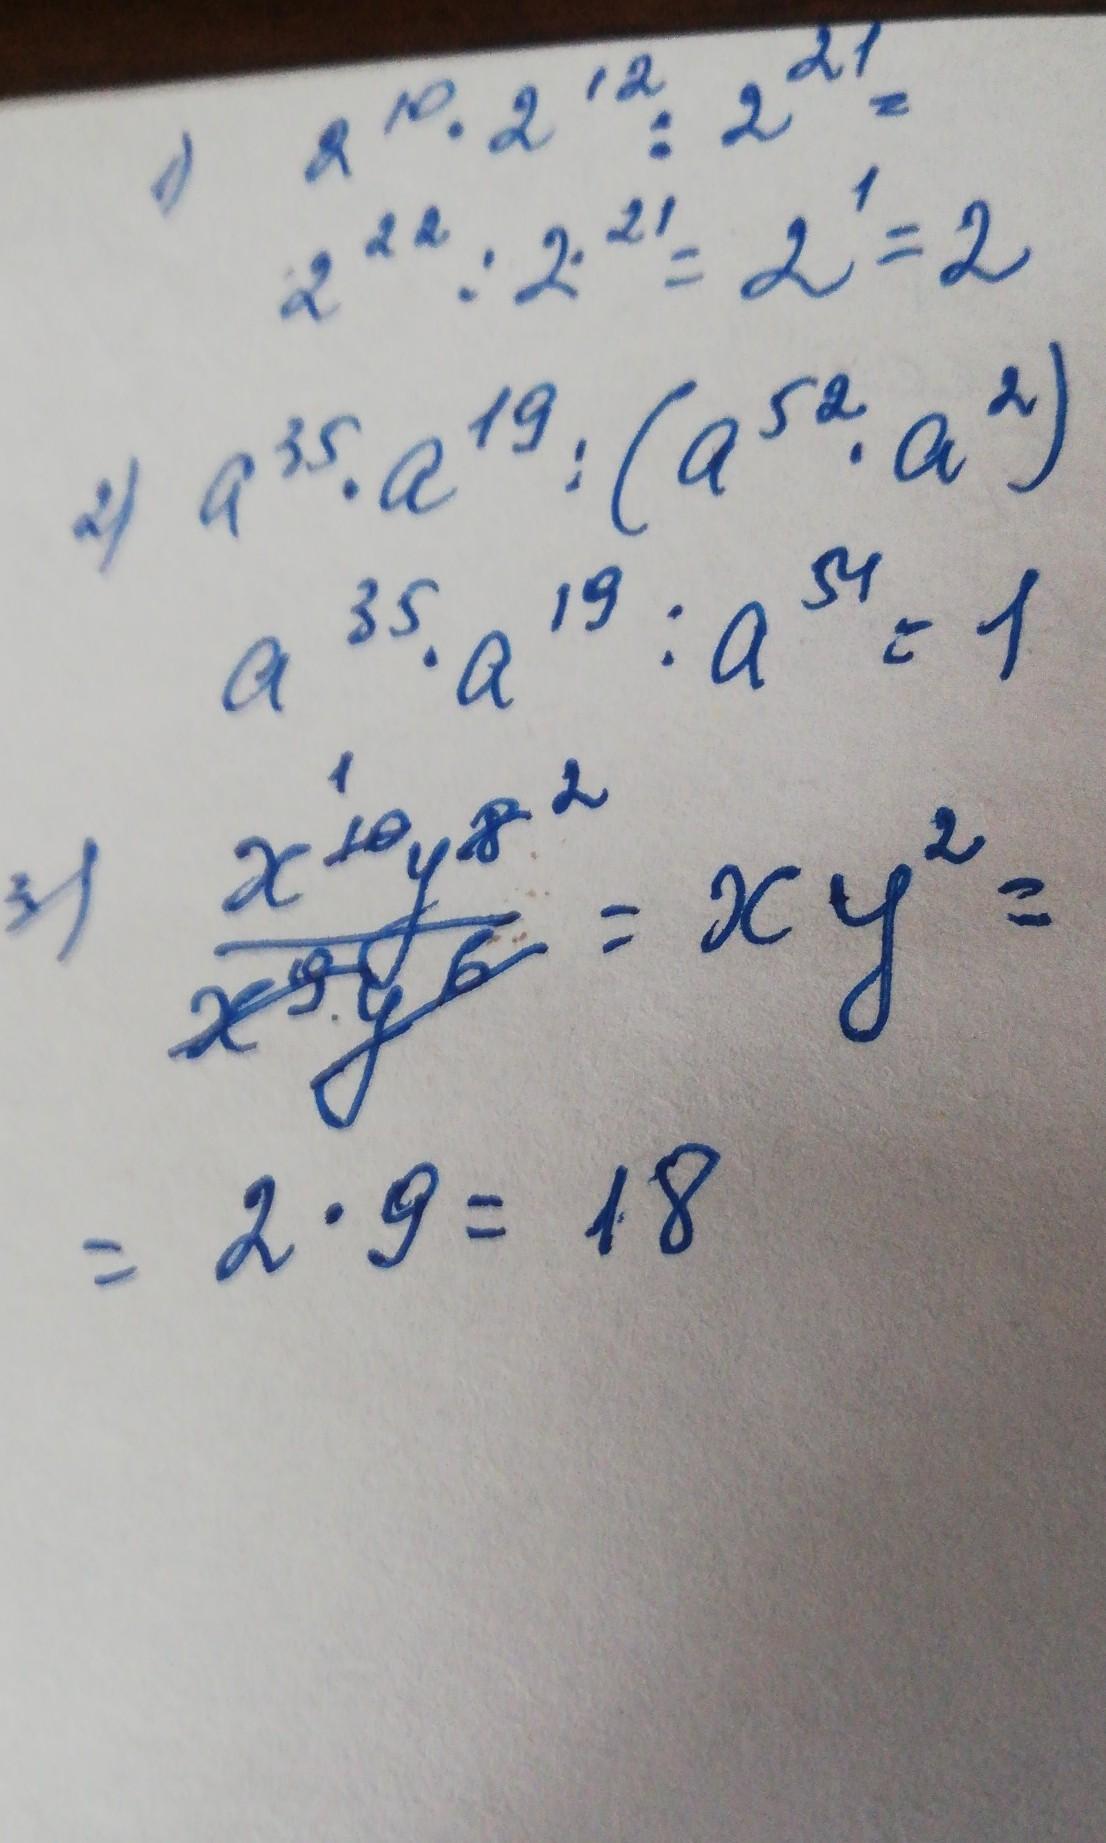 1) 2¹⁰ · 2¹² : 2²¹ =
2²² : 2²¹ = 2¹ = 2
2) a³⁵ · a¹⁹ : (a⁵² · a²)
a³⁵ · a¹⁹ : a⁵⁴ = 1
1 2
3) x¹⁰y⁸ / x⁹·y⁶ = xy² =
= 2 · 9 = 18